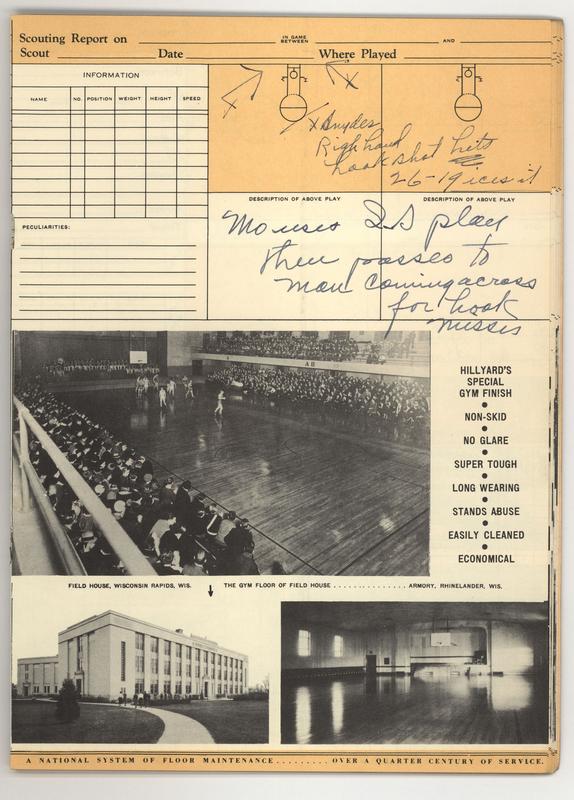 Scouting Report on ____ IN GAME BETWEEN ____ AND ____
Scout ____ Date ____ Where Played ____
INFORMATION
NAME NO. POSITION WEIGHT HEIGHT SPEED
X X
X Snyder
Right hand
hook shot hits
26-19 ices it
DESCRIPTION OF ABOVE PLAY DESCRIPTION OF ABOVE PLAY
PECULIARITIES:
Mo uses play
then passes to
man coming across
for hook
misses
A H
HILLYARD'S
SPECIAL
GYM FINISH
NON-SKID
NO GLARE
SUPER TOUGH
LONG WEARING
STANDS ABUSE
EASILY CLEANED
ECONOMICAL
FIELD HOUSE, WISCONSIN RAPIDS, WIS. THE GYM FLOOR OF FIELD HOUSE . . . . . . . . . . . . . . . ARMORY, RHINELANDER, WIS.
A NATIONAL SYSTEM OF FLOOR MAINTENANCE . . . . . . . . . OVER A QUARTER CENTURY OF SERVICE.